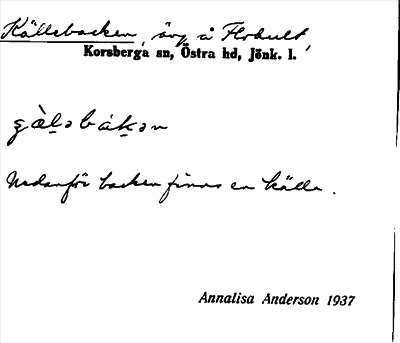 Källebacken, äng å Flohult,
Korsberga sn, Östra hd, Jönk. l.
Nedanför backen finns en källa.
Annalisa Anderson 1937